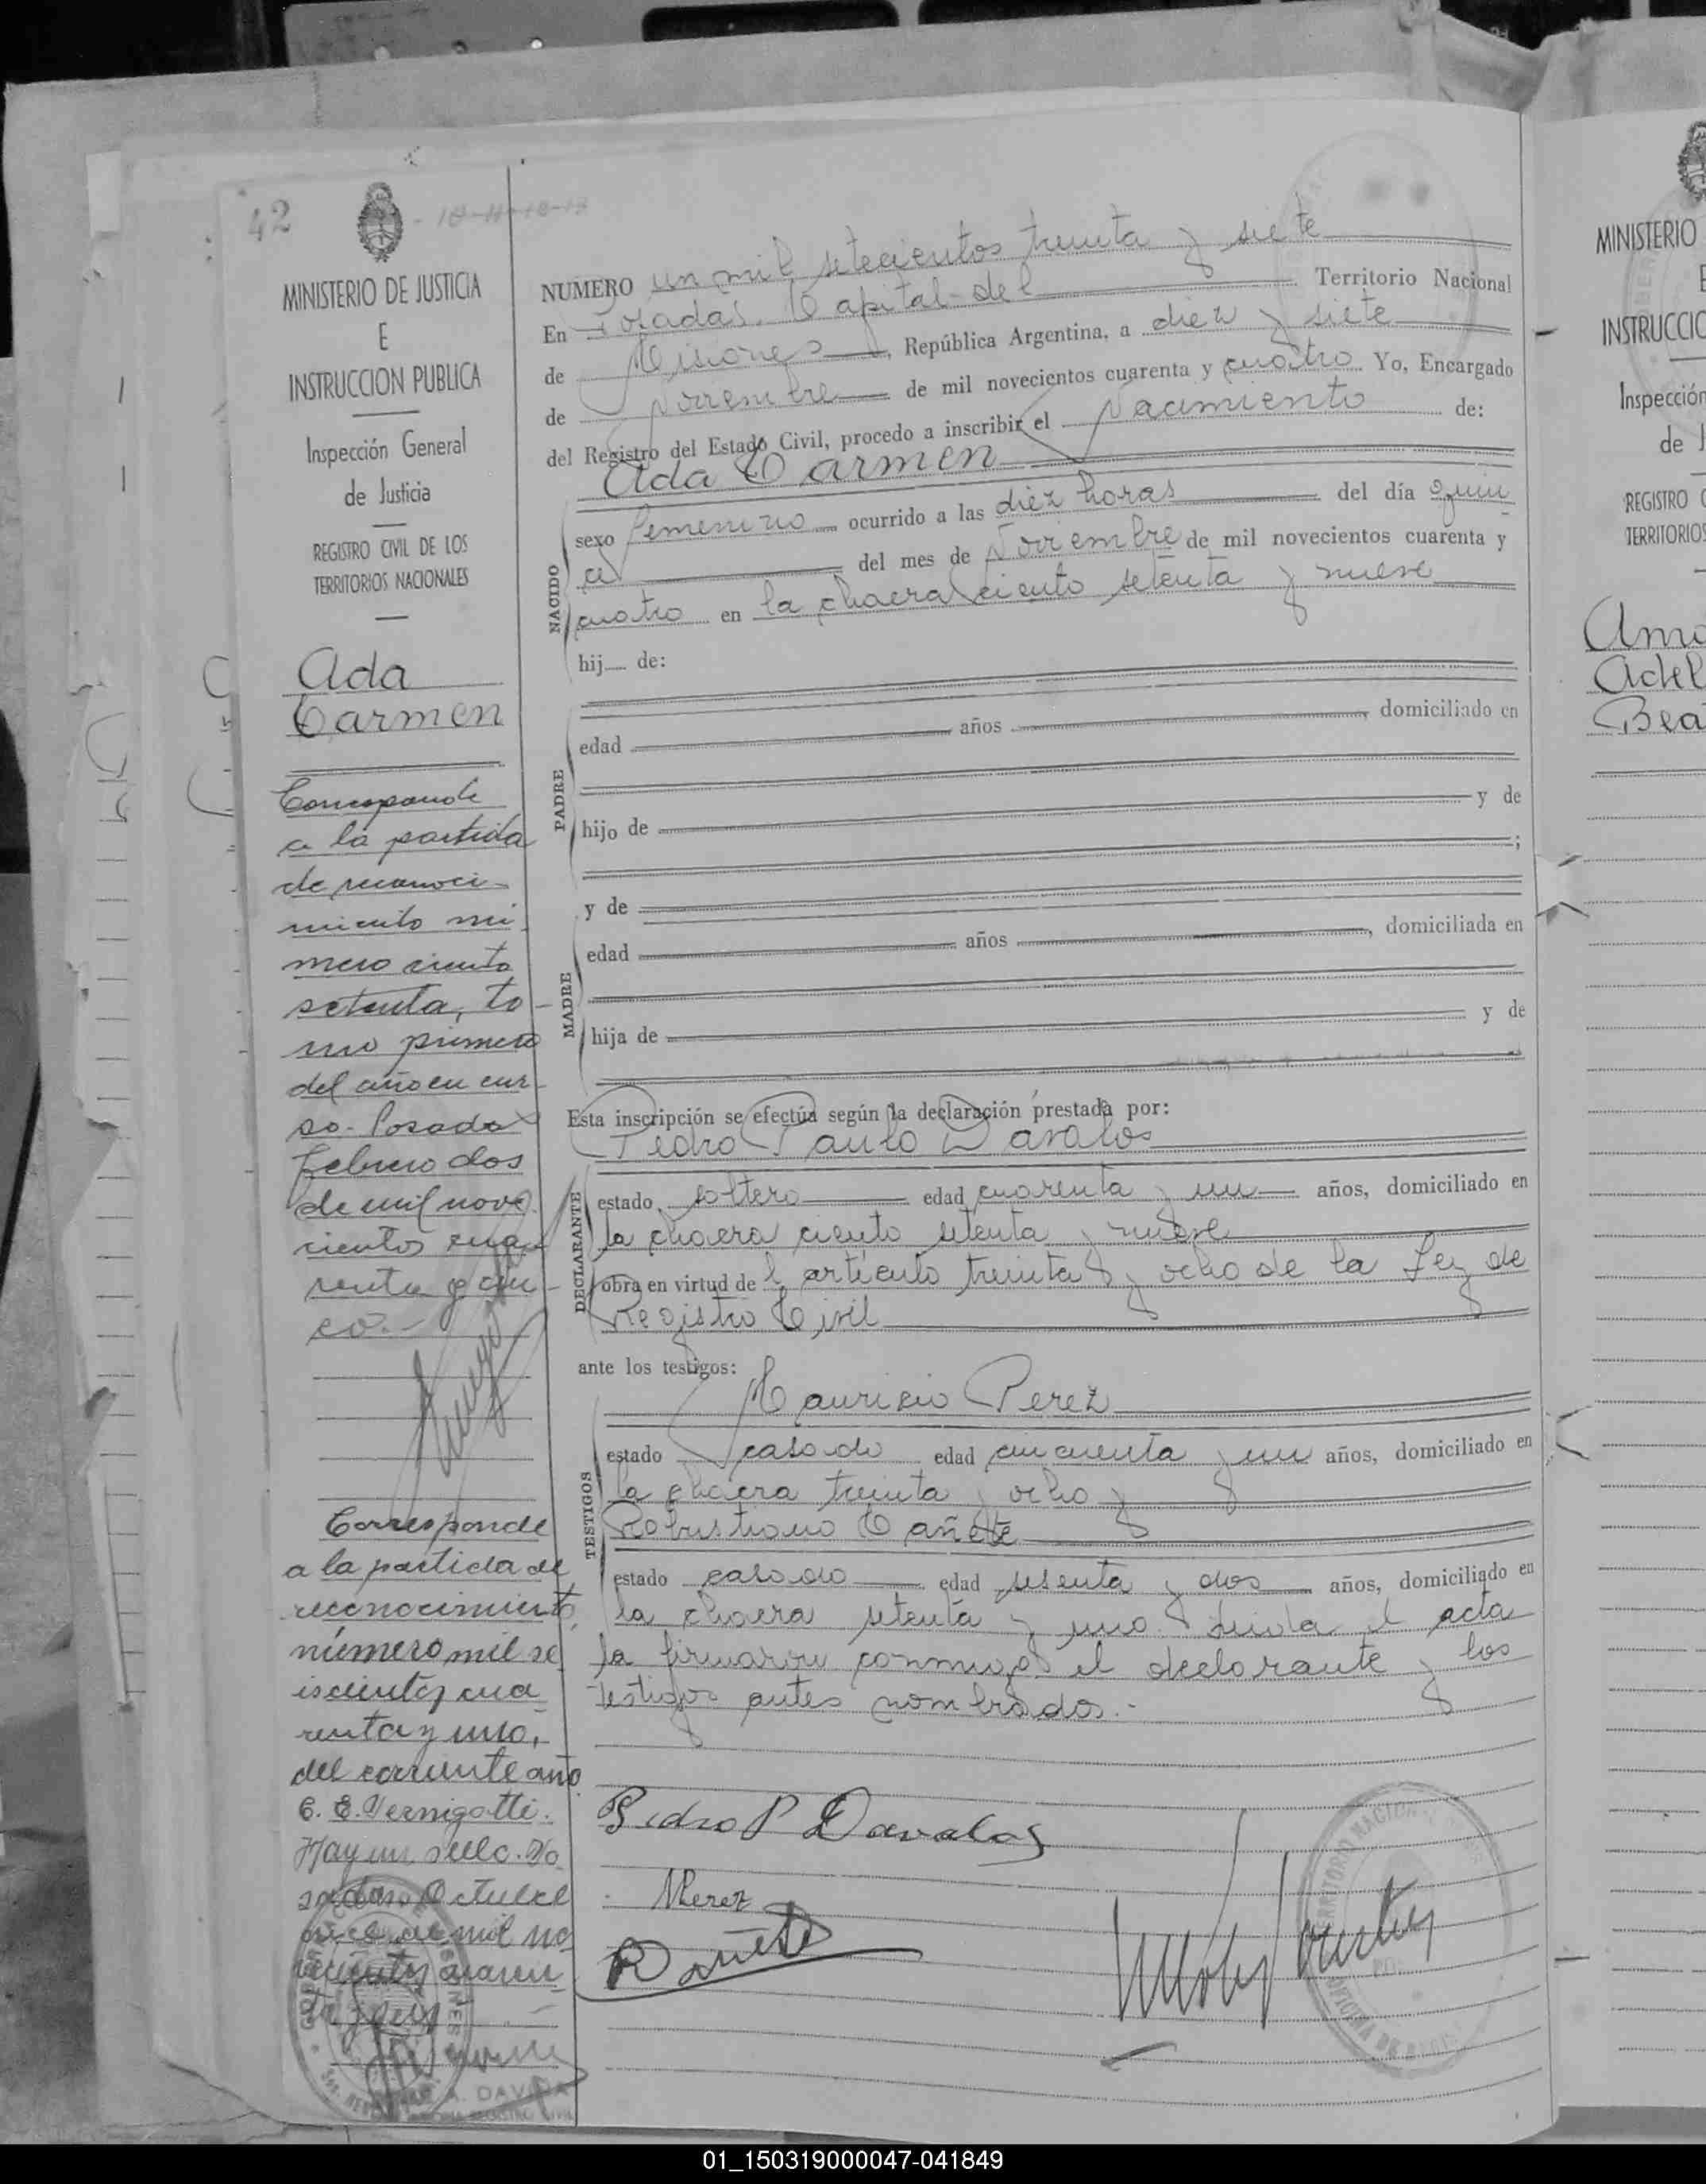 42
MINISTERIO DE JUSTICIA
E
INSTRUCCION PUBLICA
Inspección General
de Justicia
REGISTRO CIVIL DE LOS
TERRITORIOS NACIONALES
Ada
Carmen
Corresponde
a la partida
de reconoci-
miento nú-
mero ciento
setenta, to-
mo primero
del año en cur-
so.- Posadas
febrero dos
de mil nove-
cientos cua-
renta y cin-
co.-
Corresponde
a la partida de
reconocimiento,
número mil se
iscientos cua
renta y uno,
del corriente año
C. E. Vernigotti.
Hay un sello. Po
sadas Octubre
de mil no
vecientos cuaren
ta y
A. DAV
NUMERO un mil setecientos treinta y siete
En Posadas, Capital del Territorio Nacional
de Misiones, República Argentina, a diez y siete
de Noviembre de mil novecientos cuarenta y cuatro Yo, Encargado
del Registro del Estado Civil, procedo a inscribir el Nacimiento de:
Ada Carmen
NACIDO
sexo femenino ocurrido a las diez horas del día quin
ce del mes de Noviembre de mil novecientos cuarenta y
cuatro en la chacra ciento setenta y nueve
hij de:
PADRE
edad años domiciliado en
hijo de y de
;
MADRE
y de
edad años, domiciliada en
hija de y de
Esta inscripción se efectúa según la declaración prestada por:
Pedro Paulo Davalos
DECLARANTE
estado soltero edad cuarenta y un años, domiciliado en
la chacra ciento setenta y nueve
obra en virtud del artículo treinta y ocho de la Ley de
Registro Civil
ante los testigos:
Mauricio Perez
TESTIGOS
estado casado edad cincuenta y un años, domiciliado en
la chacra treinta y ocho y
Robustiano Cañete
estado casado edad sesenta y dos años, domiciliado en
la chacra setenta y uno. Leida el acta
la firmaron conmigo el declarante y los
testigos antes nombrados.-
Pedro P Davalos
MPerez
RCañete
TERRITORIO NACIONAL
OFICINA DE
MINISTERIO
E
INSTRUCCIO
Inspección
de J
REGISTRO C
TERRITORIOS
Adel
Bea
01_150319000047-041849